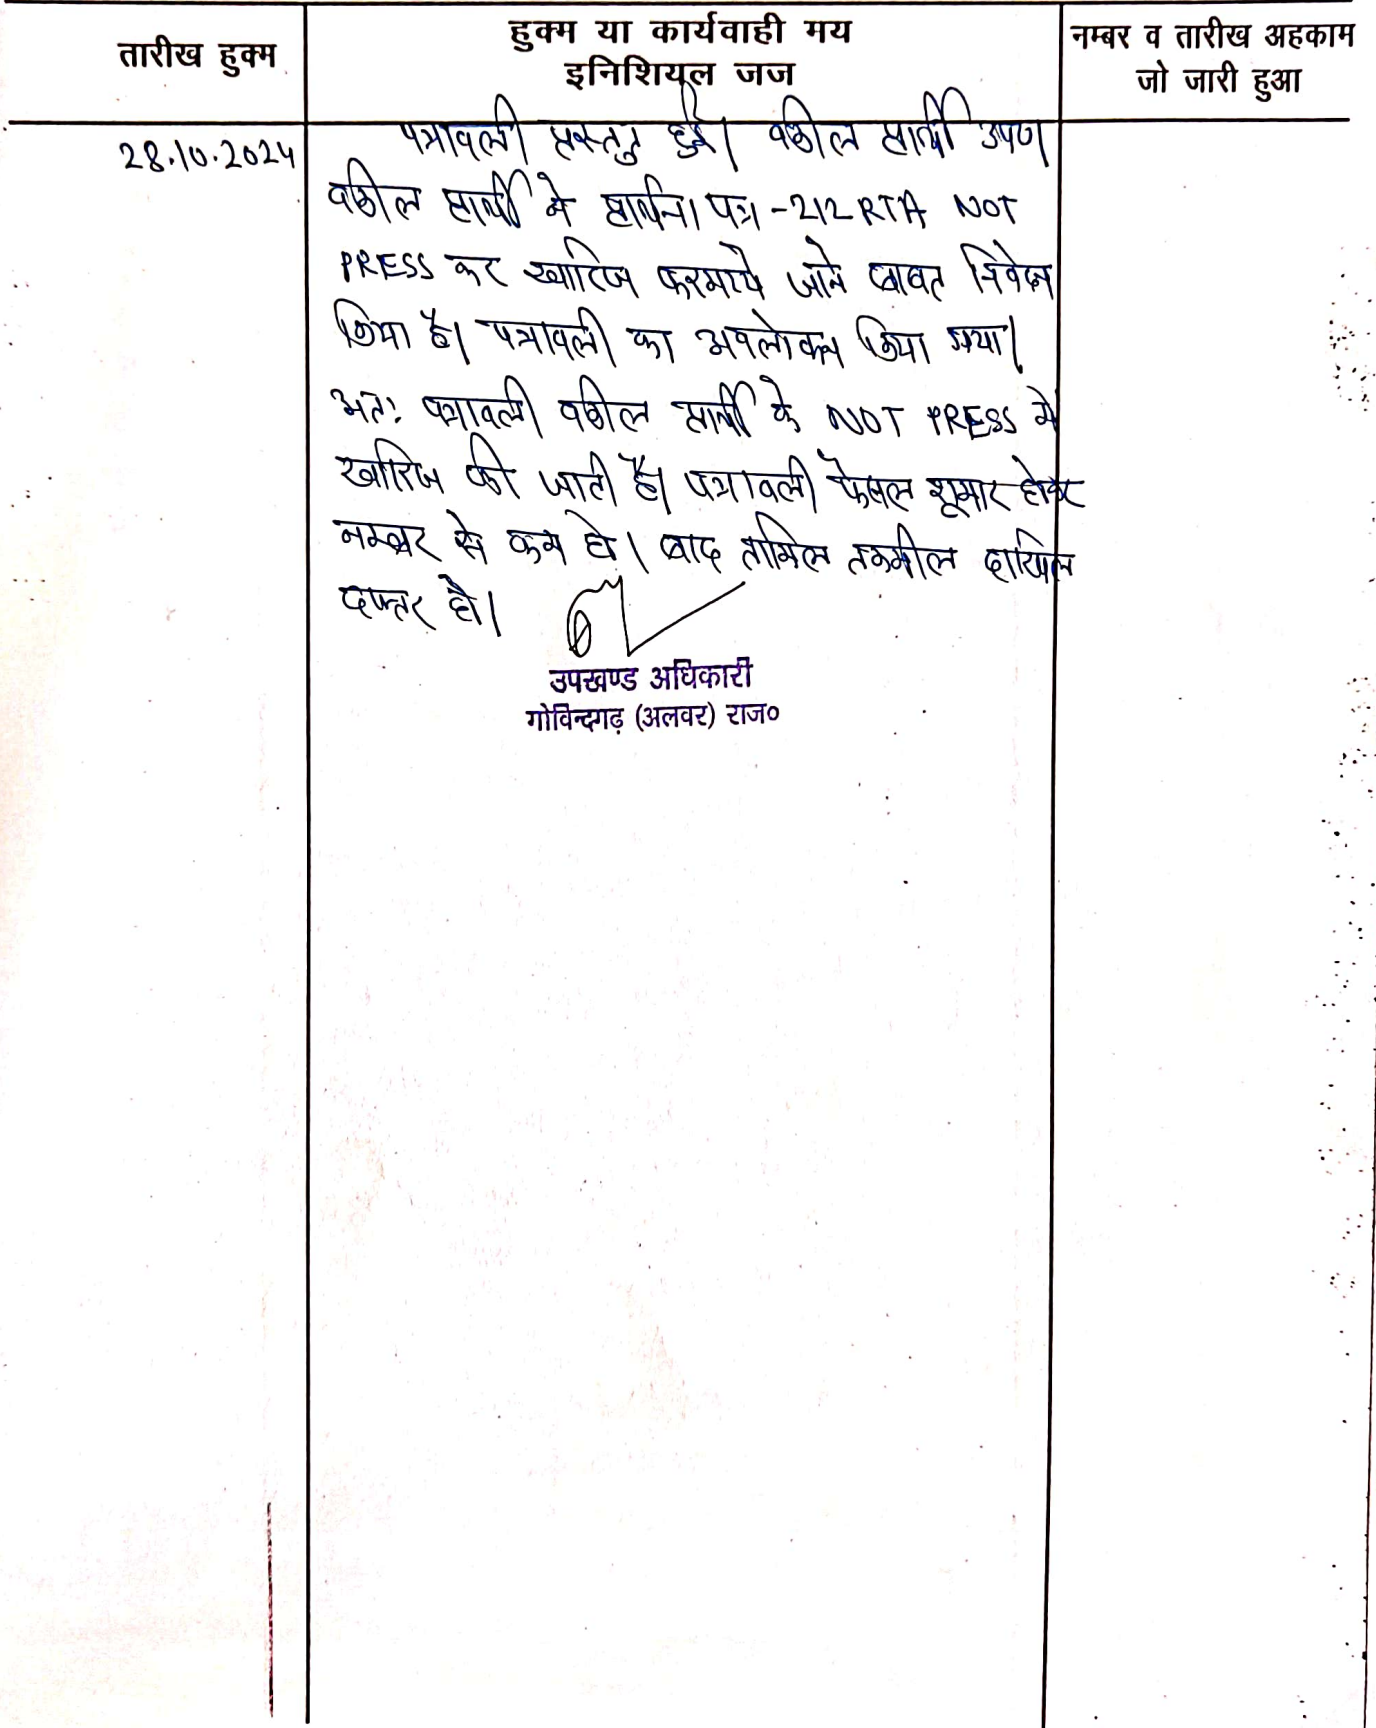 तारीख हुक्म
हुक्म या कार्यवाही मय
इनिशियल जज
नम्बर व तारीख अहकाम
जो जारी हुआ
28.10.2024
पत्रावली प्रस्तुत हुई। वकील प्रार्थी उप०।
वकील प्रार्थी ने प्रार्थना पत्र -212 RTA NOT
PRESS कर खारिज फरमाये जाने बाबत निवेदन
किया है। पत्रावली का अवलोकन किया गया।
अतः पत्रावली वकील प्रार्थी के NOT PRESS में
खारिज की जाती है। पत्रावली फैसल शूमार होकर
नम्बर से कम हो। बाद तामिल तकमील दाखिल
दफ्तर हो।
उपखण्ड अधिकारी
गोविन्दगढ़ (अलवर) राज०